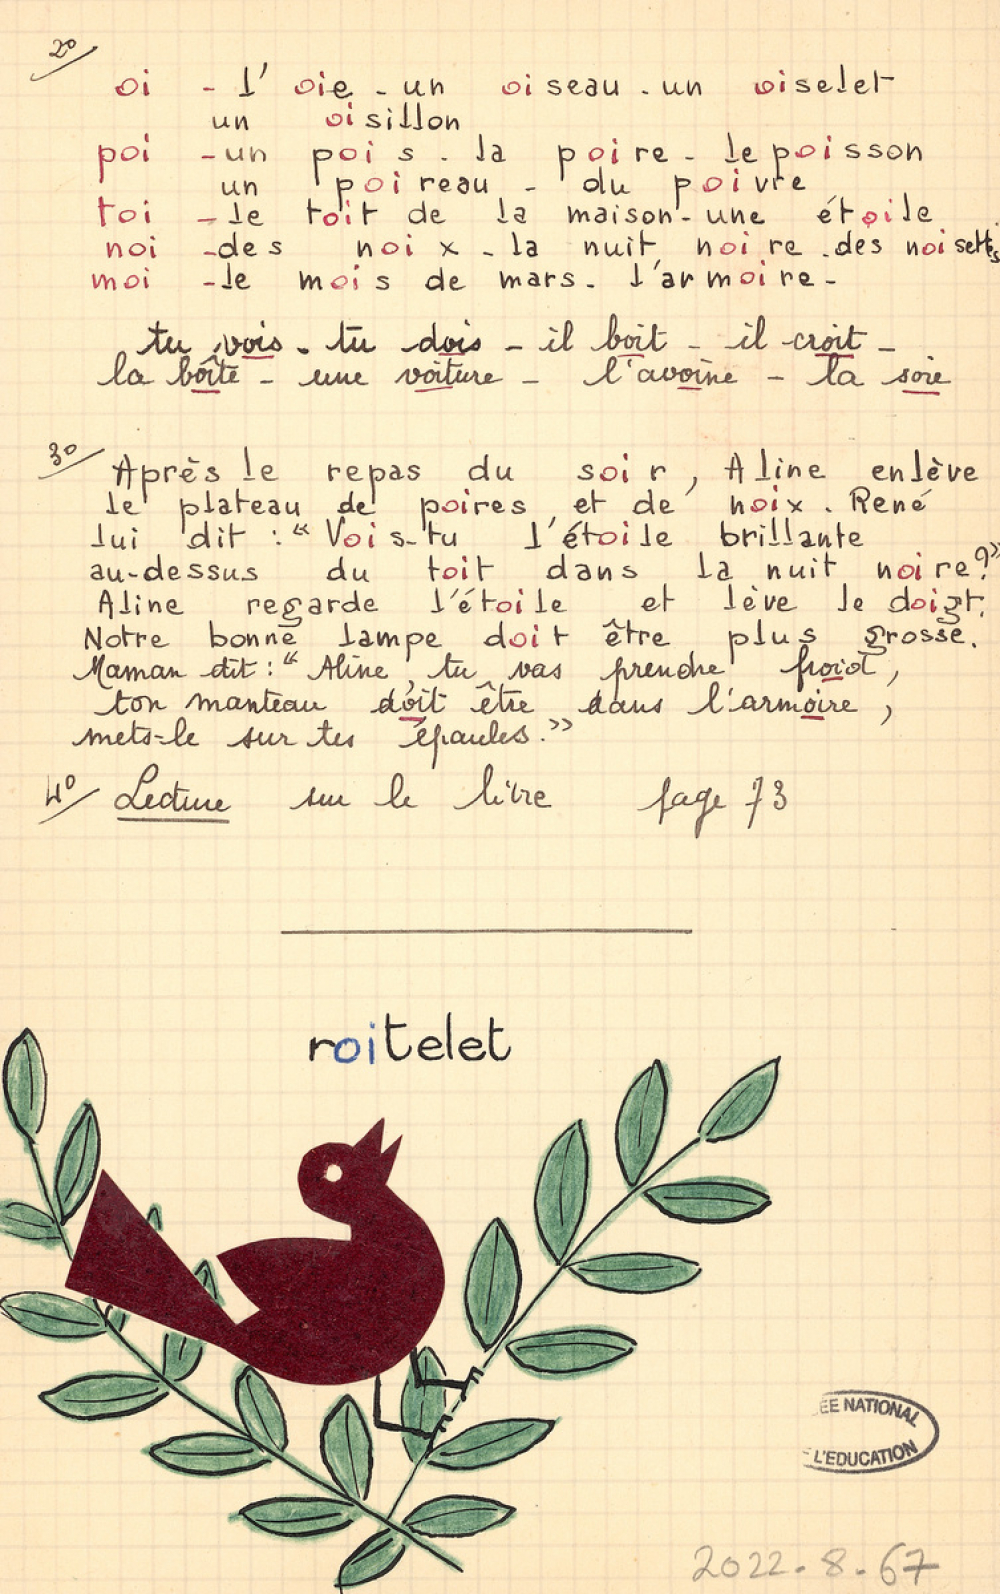 2º/
oi - l'oie - un oiseau - un oiselet
un oisillon
poi - un pois - la poire - le poisson
un poireau - du poivre
toi - le toit de la maison - une étoile
noi - des noix - la nuit noire - des noisettes
moi - le mois de mars - l'armoire -
tu vois - tu dois - il boit - il croit -
la boîte - une voiture - l'avoine - la soie
3º/ Après le repas du soir, Aline enlève
le plateau de poires et de noix. René
lui dit : "Vois-tu l'étoile brillante
au-dessus du toit dans la nuit noire ?"
Aline regarde l'étoile et lève le doigt.
Notre bonne lampe doit être plus grosse.
Maman dit : "Aline, tu vas prendre froid,
ton manteau doit être dans l'armoire,
mets-le sur tes épaules."
4º/ Lecture sur le livre page 73
roitelet
ÉE NATIONAL
L'EDUCATION
2022.8.67